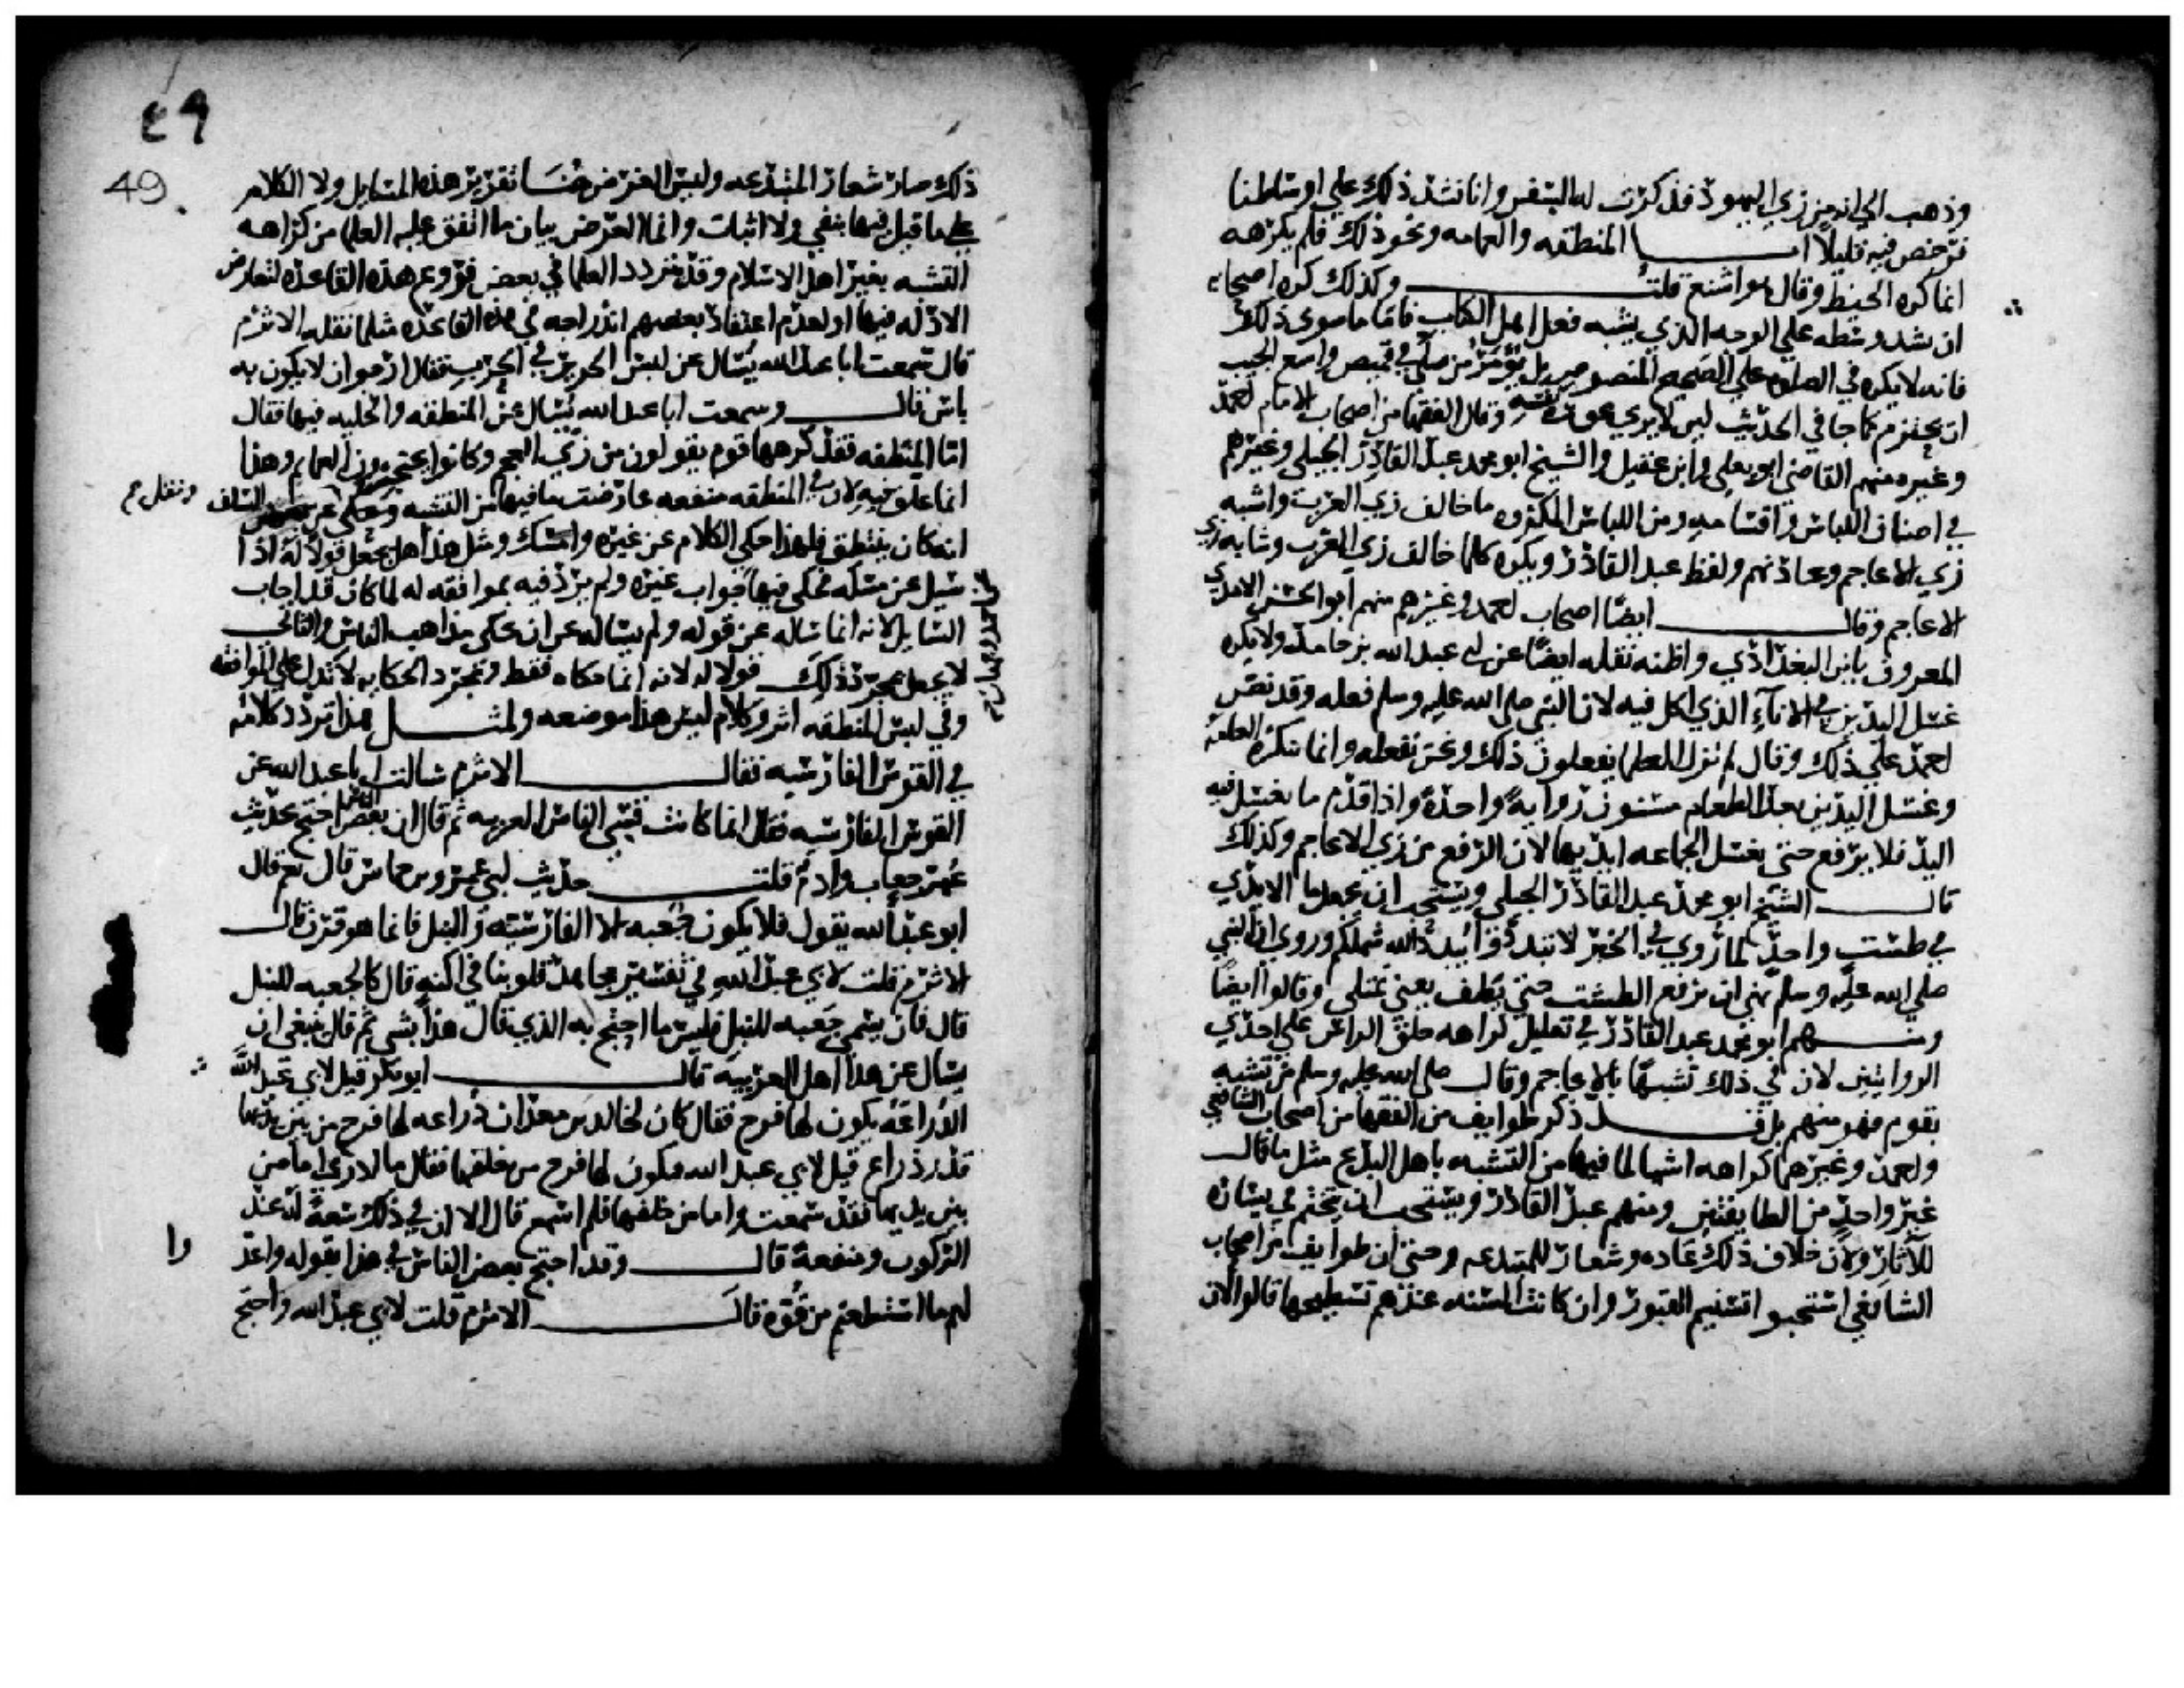 وذهب الى انه من زي اليهود فذكرت له السفر وانا نشد ذلك على اوساطنا
فرخص فيه قليلا اما المنطقه والعمامه ونحو ذلك فلم يكرهه
انما كره الخيط وقال هو اشنع قلت وكذلك كره اصحابه
ان يشد وسطه على الوجه الذي يشبه فعل اهل الكتاب فاما ما سوى ذلك
فانه لا يكره في الصلوه على الصحيح المنصوص بل يؤمر من صلى في قميص واسع الجيب
ان يحتزم كما جا في الحديث ليلا يرى عورة نفسه وقال الفقها من اصحاب الامام احمد
وغيره منهم القاضي ابو يعلى وابن عقيل والشيخ ابو محمد عبد القادر الجيلي وغيرهم
في اصناف اللباس واقسامه ومن اللباس المكروه ما خالف زي العرب واشبه
زي الاعاجم وعادتهم ولفظ عبد القادر ويكره كلما خالف زي العرب وشابه زي
الاعاجم وقال ايضا اصحاب احمد وغيرهم منهم ابو الحسن الامدي
المعروف بابن البغدادي واظنه نقله ايضا عن ابي عبد الله بن حامد ولا يكره
غسل اليدين في الاناء الذي اكل فيه لان النبي صلى الله عليه وسلم فعله وقد نص
احمد على ذلك وقال لم نزل العلما يفعلون ذلك ونحن نفعله وانما تنكره العامه
وغسل اليدين بعد الطعام مسنون رواية واحدة واذا قدم ما يغسل فيه
اليد فلا يرفع حتى يغسل الجماعه ايديها لان الرفع من زي الاعاجم وكذلك
قال الشيخ ابو محمد عبد القادر الجيلي ويستحب ان يجعل ما الايدي
في طست واحد لما روي في الخبر لا تبددوا يبدد الله شملكم وروي ان النبي
صلى الله عليه وسلم نهى ان يرفع الطست حتى يطف يعني يمتلي وقالوا ايضا
ومنهم ابو محمد عبد القادر في تعليل كراهه حلق الراس على احدي
الروايتين لان في ذلك تشبها بالاعاجم وقال صلى الله عليه وسلم من تشبه
بقوم فهو منهم بل قد ذكر طوايف من الفقها من اصحاب الشافعي
واحمد وغيرهما كراهه اشيا لما فيها من التشبه باهل البدع مثل ما قال
غير واحد من الطايفتين ومنهم عبد القادر ويستحب ان يتختم في يساره
للآثار ولان خلاف ذلك عاده وشعار للمبتدعه وحتى ان طوايف من اصحاب
الشافعي استحبوا تسنيم القبور وان كانت السنه عندهم تسطيحها قالوا لان
٤٩
49
ذلك صار شعار المبتدعه وليس الغرض هنا تقرير هذه المسايل ولا الكلام
على ما قيل فيها بنفي ولا اثبات وانما الغرض بيان ما اتفق عليه العلما من كراهه
التشبه بغير اهل الاسلام وقد يتردد العلما في بعض فروع هذه القاعده لتعارض
الادله فيها او لعدم اعتقاد بعضهم اندراجه في هذه القاعده مثلما نقله الاثرم
قال سمعت ابا عبد الله يسال عن لبس الحرير في الحرب فقال ارجو ان لا يكون به
باس قال وسمعت ابا عبد الله يسال عن المنطقه والحليه فيها فقال
اما المنطقه فقد كرهها قوم يقولون من زي العجم وكانوا يحتجزون العمايم وهذا
انما علق فيه لان في المنطقه منفعه عارضت ما فيها من التشبه ونقل عن بعض السلف
انه كان يتنطق فلهذا حكى الكلام عن غيره وامسك ومثل هذا هل يجعل قولا له اذا
سيل عن مسله فحكى فيها جواب غيره ولم يرد فيه بموافقه له لما كان قد اجاب
السايل لانه انما ساله عن قوله ولم يساله عن ان يحكي مذاهب الناس والثاني
لا يجعل بمجرد ذلك قولا له لانه انما حكاه فقط ومجرد الحكايه لا تدل على الموافقه
وفي لبس المنطقه اثر وكلام ليس هذا موضعه ولمثل هذا تردد كلامه
في القوس الفارسيه فقال الاثرم سالت ابا عبد الله عن
القوس الفارسيه فقال انما كانت قسي الناس العربيه ثم قال ان بعض الناس احتج بحديث
عمر جعاب وادم قلت حديث ابي عمرو بن حماس قال نعم قال
ابو عبد الله يقول فلا يكون جعبه الا الفارسيه والنبل فانما هو قرن قال
الاثرم قلت لابي عبد الله في تفسير مجاهد قلوبنا في اكنه قال كالجعبه للنبل
قال فان يسمى جعبه للنبل فليس ما احتج به الذي قال هذا بشي ثم قال ينبغي ان
يسال عن هذا اهل العربيه قال ابو بكر قيل لابي عبد الله
الدراعه يكون لها فرج فقال كان لخالد بن معدان دراعه لها فرج من بين يديها
قدر ذراع قيل لابي عبد الله فيكون لها فرج من خلفها فقال ما ادري اما من
بين يديها فقد سمعت واما من خلفها فلم اسمع قال الا ان في ذلك سعه له عند
الركوب ومنفعة قال وقد احتج بعض الناس في هذا بقوله واعدوا
لهم ما استطعتم من قوة قال الاثرم قلت لابي عبد الله واحتج